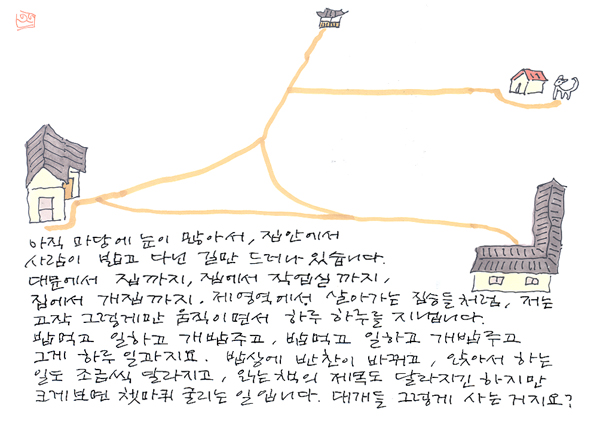 아직 마당에 눈이 많아서, 집안에서
사람이 밟고 다닌 길만 드러나 있습니다.
대문에서 집까지, 집에서 작업실까지,
집에서 개집까지. 제 영역에서 살아가는 짐승들처럼, 저는
고작 그렇게만 움직이면서 하루 하루를 지냅니다.
밥먹고 일하고 개밥주고, 밥먹고 일하고 개밥주고
그게 하루 일과지요. 밥상에 반찬이 바뀌고, 앉아서 하는
일도 조금씩 달라지고, 읽는 책의 제목도 달라지긴 하지만
크게보면 쳇바퀴 굴리는 일입니다. 대개들 그렇게 사는 거지요?